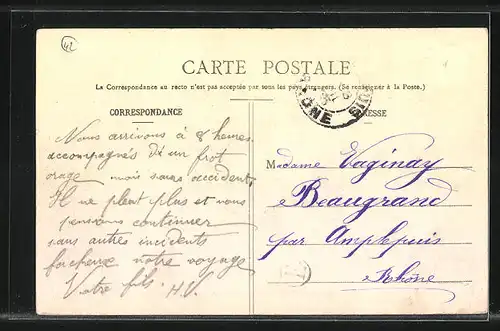 41
CARTE POSTALE
La Correspondance au recto n'est pas acceptée par tous les pays étrangers. (Se renseigner à la Poste.)
CORRESPONDANCE
RESSE
Nous arrivons à 8 heures
accompagnés d'un fort
orage mais sans accident
Il ne pleut plus et nous
pensons continuer
sans autres incidents
facheux notre voyage
Votre fils. H.V.
Madame Vaginay
Beaugrand
par Amplepuis
Rhône